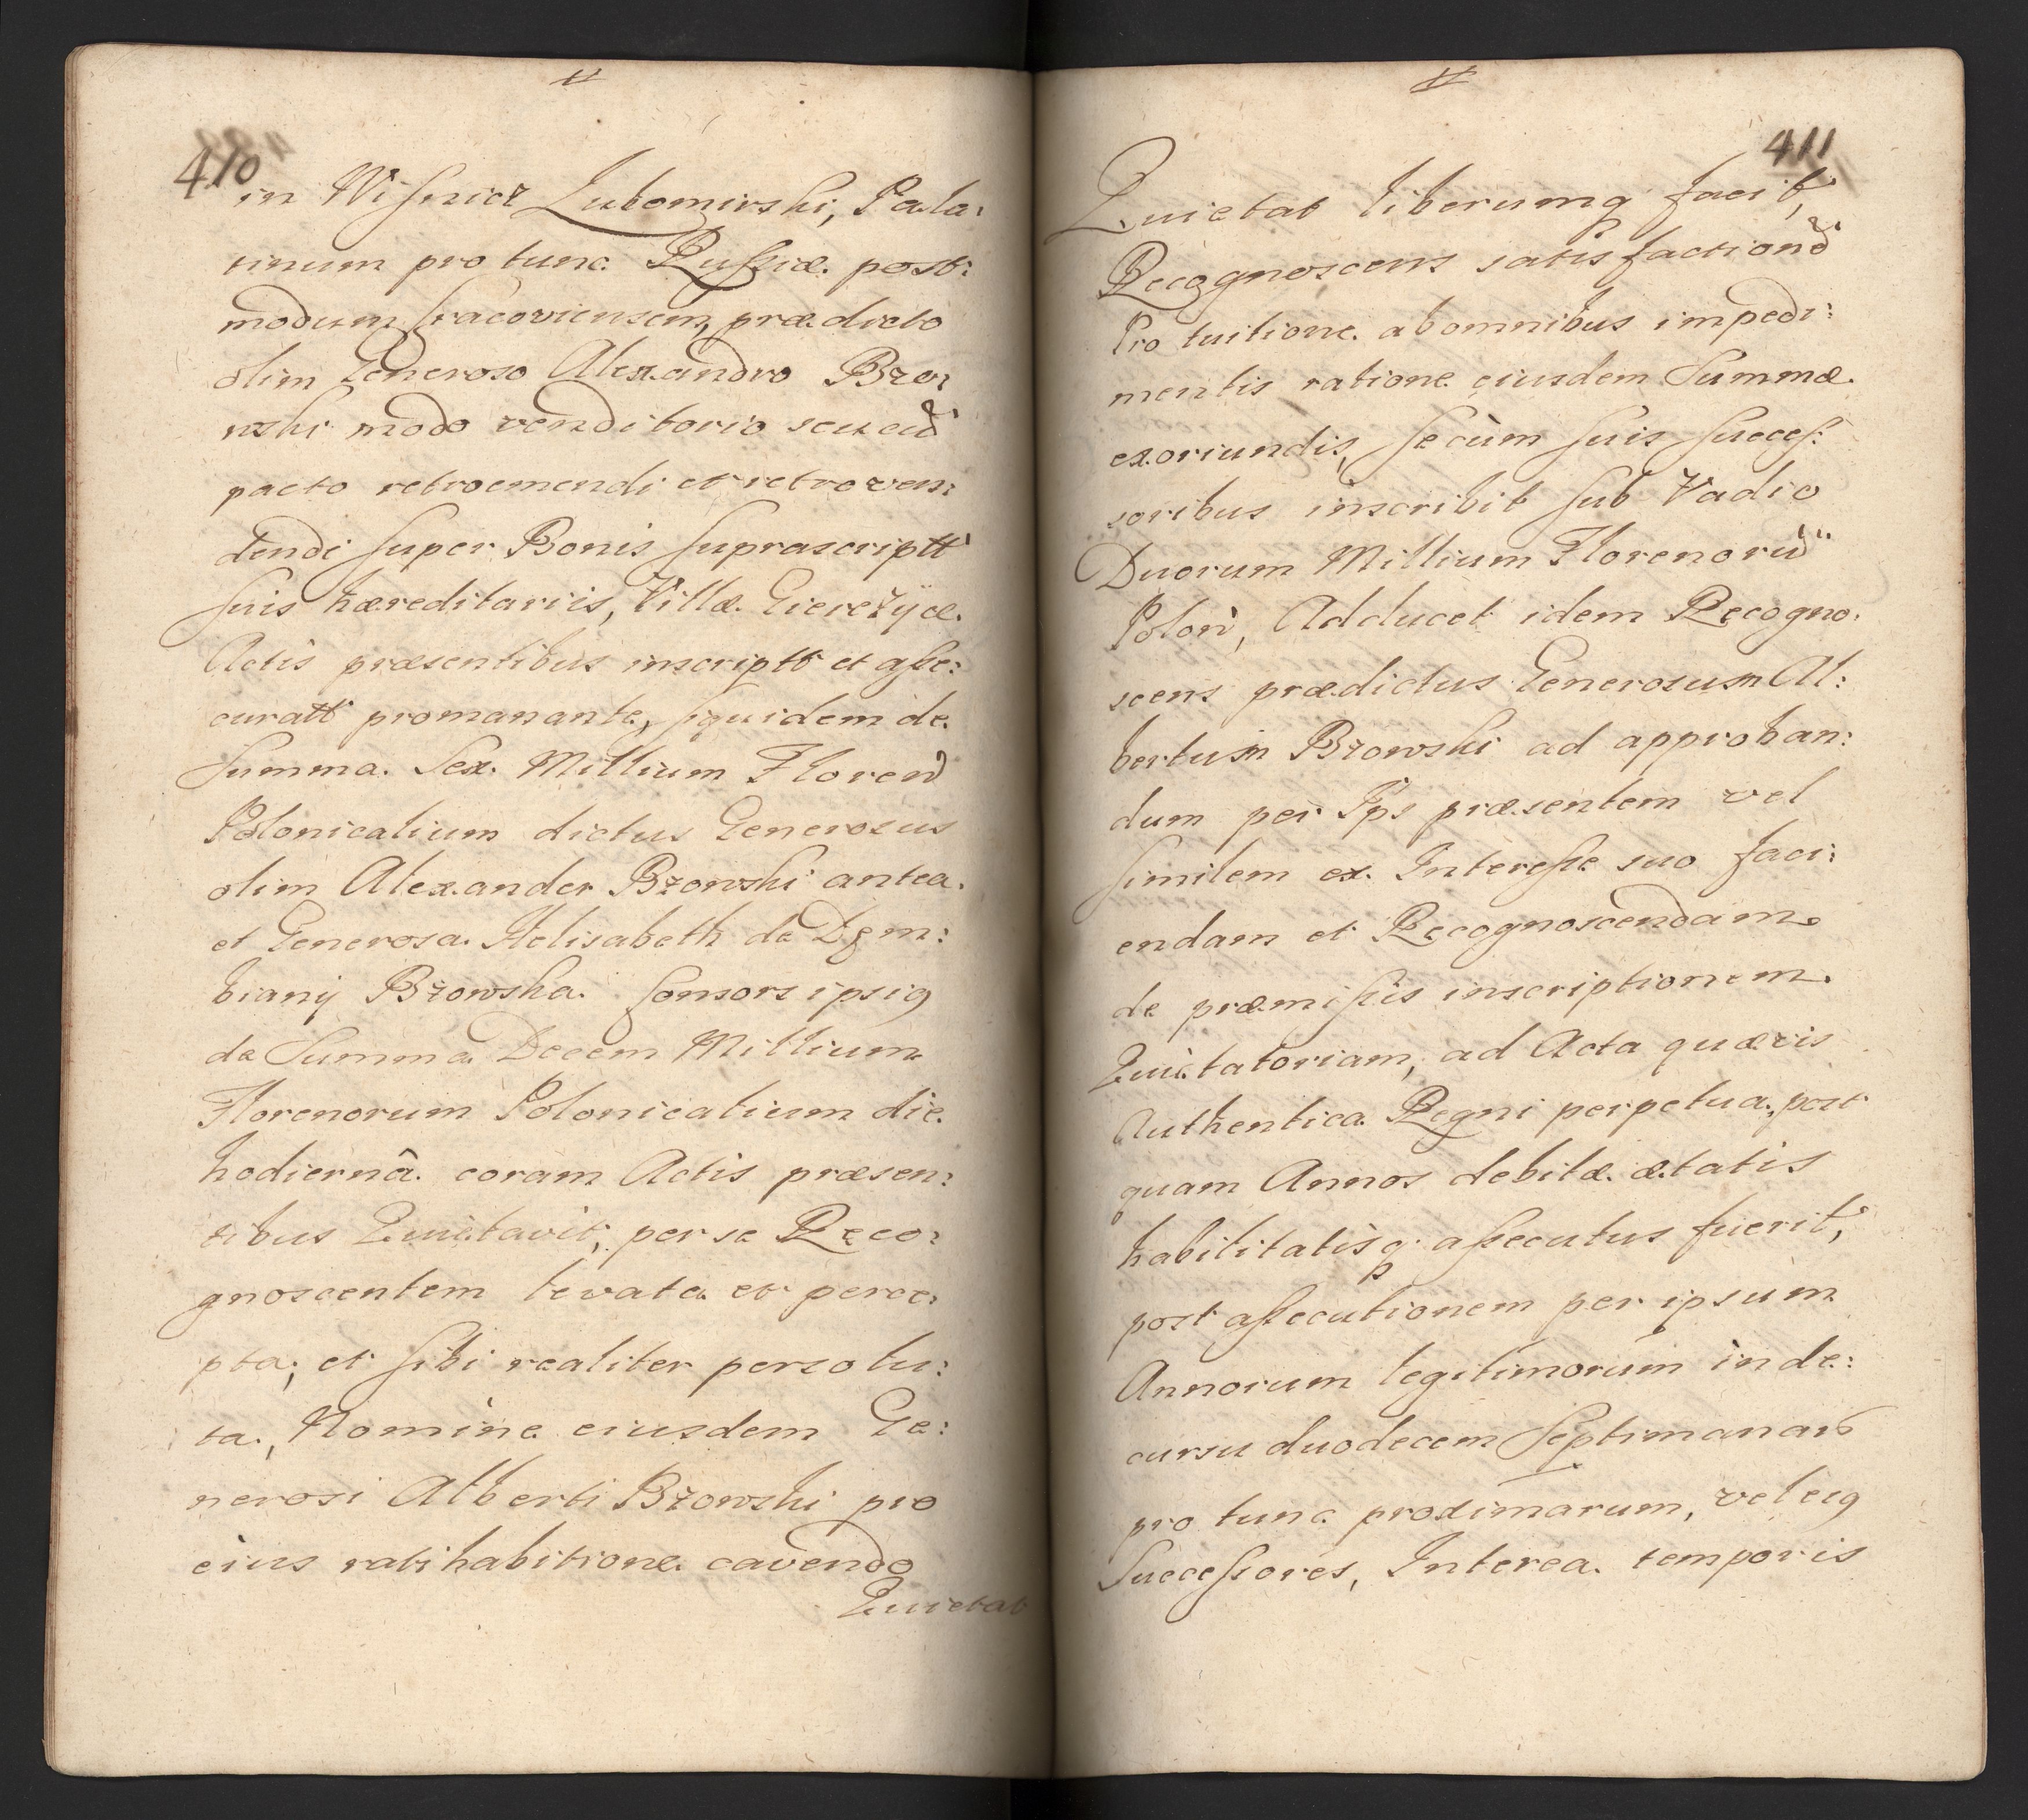 410
in Wisnicz Lubomirski, Pala:
tinum pro tunc Russiæ post:
modum Cracoviensem, prædicto
olim Generoso Alexandro Bzo:
wski modo venditorio seu cũ
pacto retroemendi et retroven:
dendi super Bonis suprascriptt
suis hæreditariis, Villæ Gierczÿcæ
Actis præsentibus inscriptt et asse:
curatt promanante, siquidem de
Summa Sex Millium Floren
Polonicalium dictus Generosus
olim Alexander Bzowski antea
et Generosa Helisabeth de Dem:
biany Bzowska Consors ipsiq
de Summa Decem Millium
Florenorum Polonicalium die
hodiernâ coram Actis præsen:
tibus Quietavit, per se Reco:
gnoscentem levata et perce:
pta, et sibi realiter persolu:
ta, Nomine eiusdem Ge:
nerosi Alberti Bzowski pro
eius ratihabitione cavendo
Quietat
411
Quietat liberumq facit,
Recognoscens satisfactionẽ
Pro tuitione ab omnibus impedi:
mentis ratione eiusdem Summæ
exoriundis, se cùm suis succes:
soribus inscribit sub Vadio
Duorum Millium Florenorũ
Polon, Adducet idem Recogno:
scens prædictus Generosum Al:
bertum Bzowski ad approban:
dum per Ips præsentem vel
similem ex Interesse suo faci:
endam et Recognoscendam
de præmissis inscriptionem
Quietatoriam, ad Acta quævis
Authentica Regni perpetua, post
quam Annos debitæ ætatis
habilitatisq assecutus fuerit,
post assecutionem per ipsùm
Annorum legitimorum in de:
cursu duodecem Septimanarũ
pro tunc proximarum, vel eiq
Successores, Interea temporis